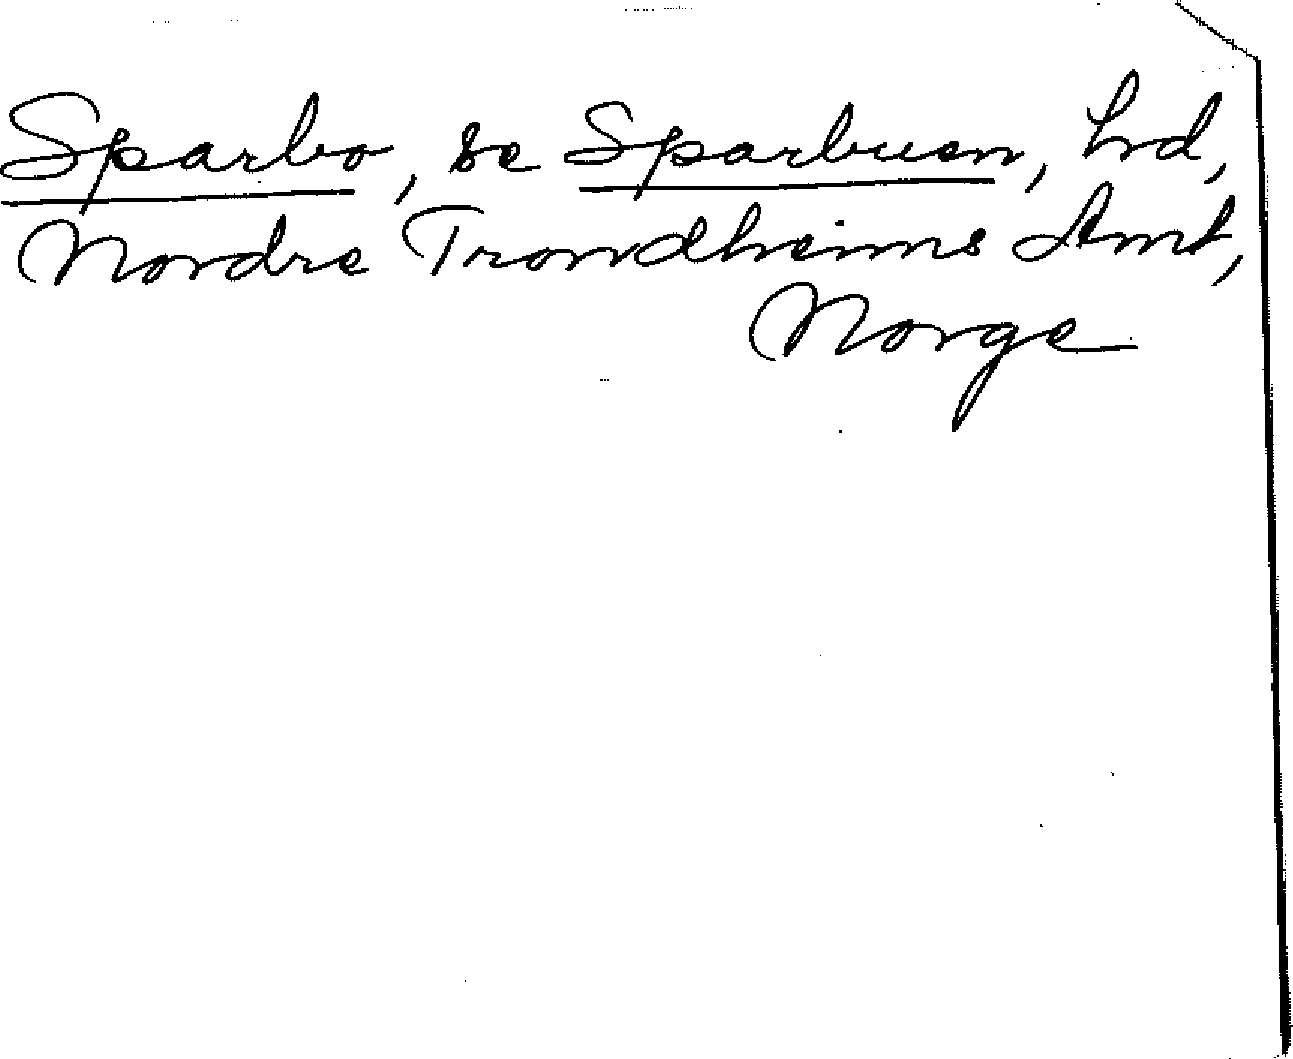 Sparbo, se Sparbuen, hrd,
Nordre Trondheims Amt,
Norge